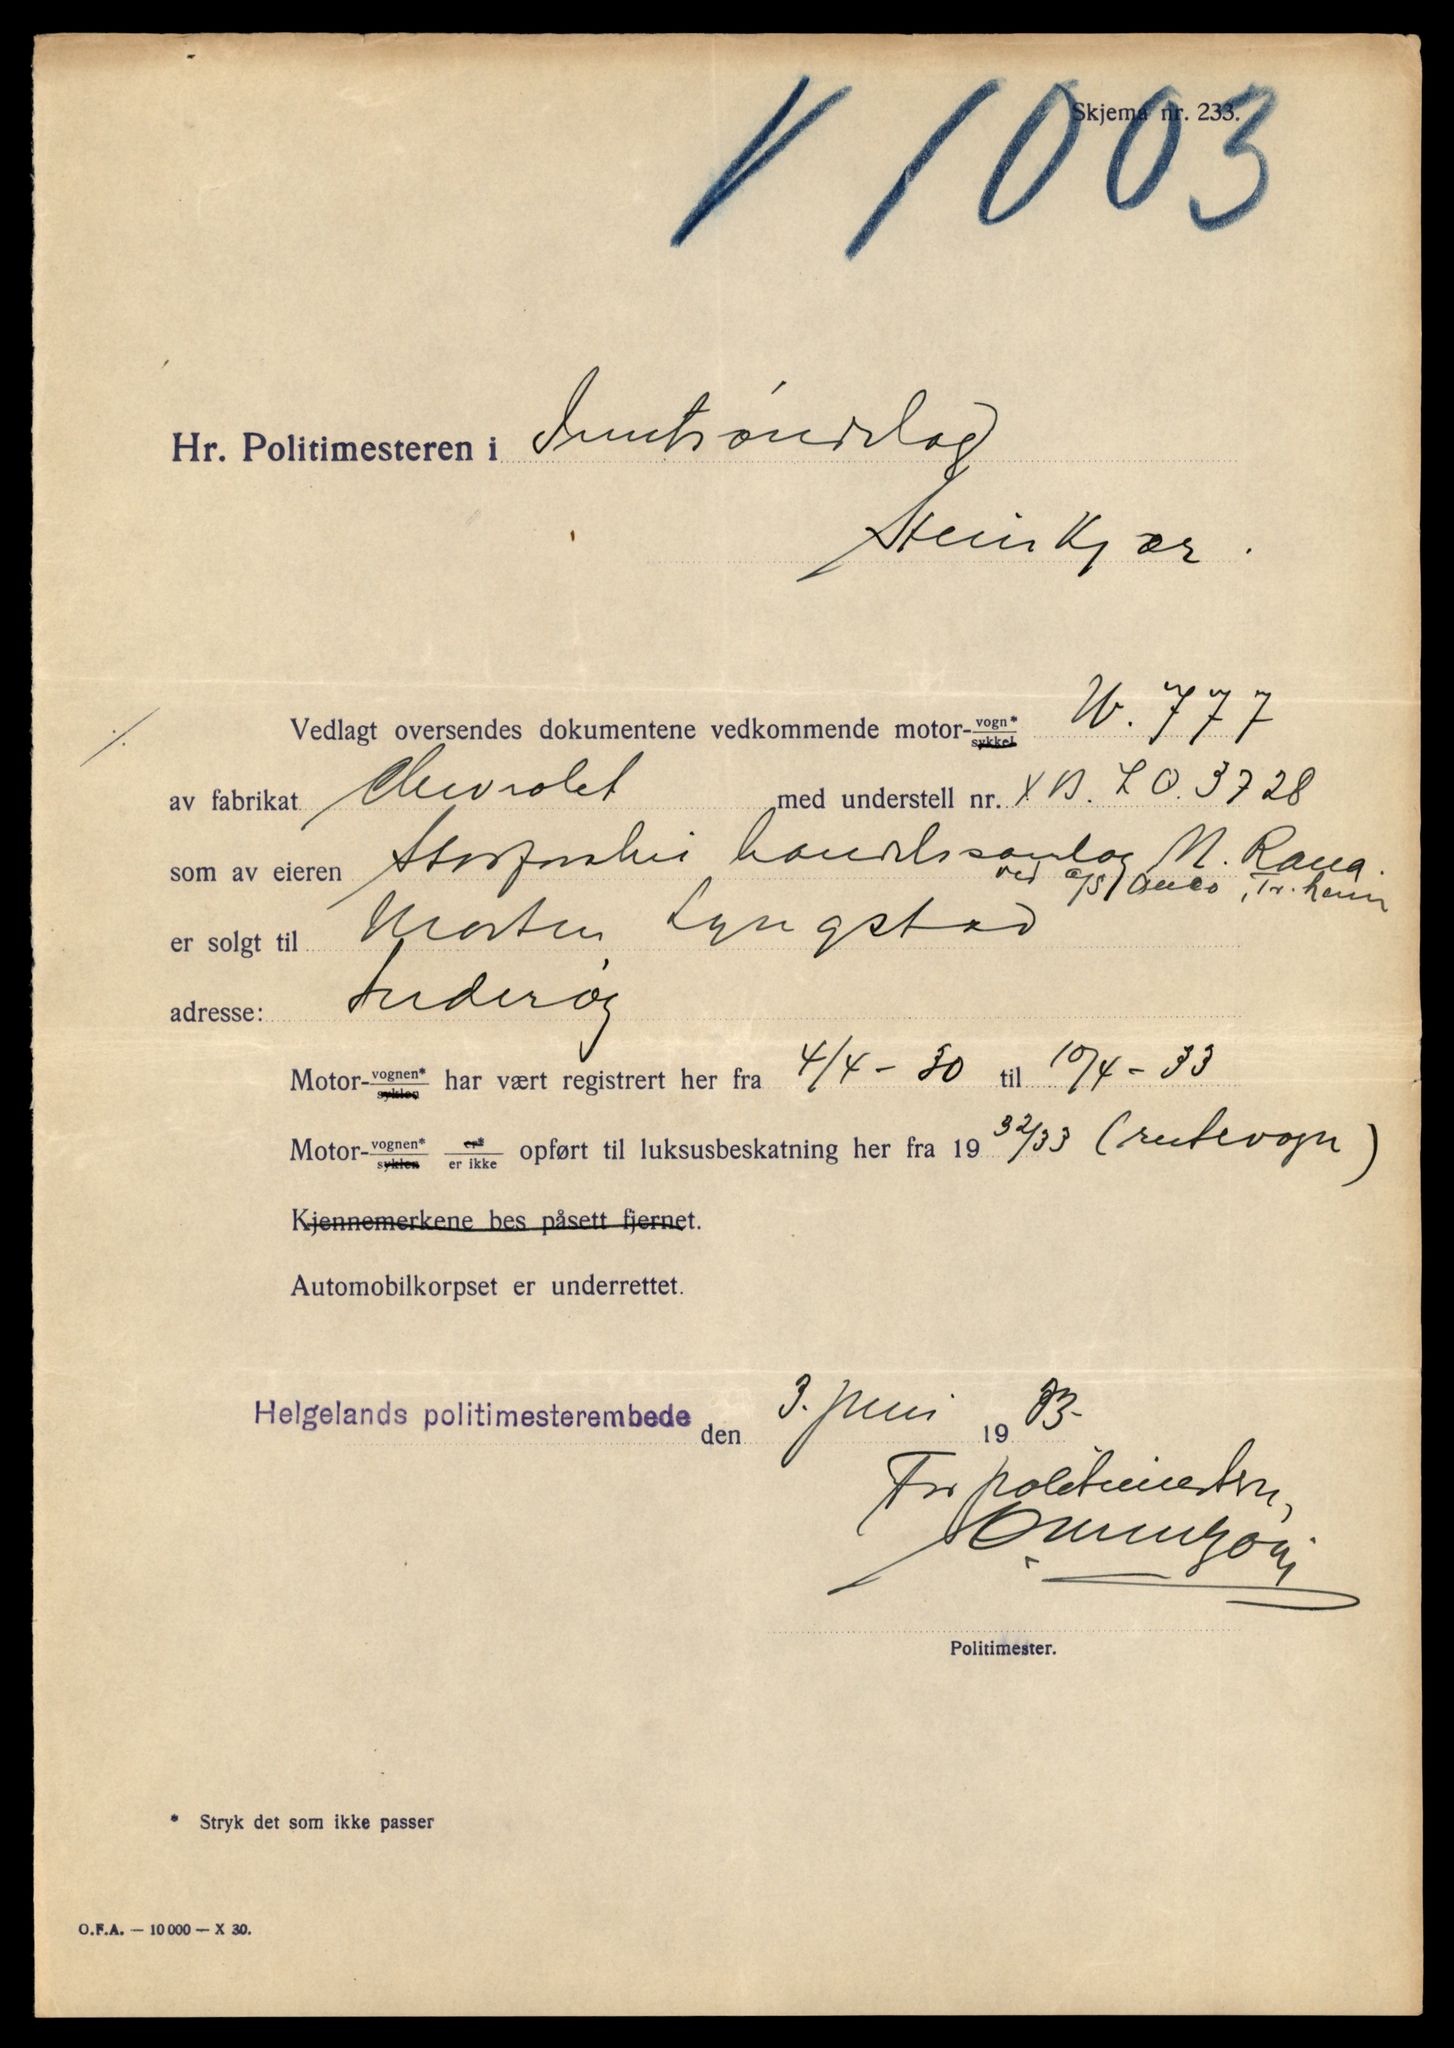 Skjema nr. 233.
V 1003
Hr. Politimesteren i Inntrøndelag
Steinkjær.
Vedlagt oversendes dokumentene vedkommende motor-vogn* sykkel W. 777
av fabrikat Chevrolet med understell nr. X B. L O. 3728
som av eieren Storforshei handelssamlag N. Rana.
ved a/s Auco, Tr.heim
er solgt til Morten Lyngstad
adresse: Inderøy
Motor-vognen* syklen har vært registrert her fra 4/4 - 30 til 10/4 - 33
Motor-vognen* syklen er* er ikke opført til luksusbeskatning her fra 19 32/33 (rutevogn)
Kjennemerkene bes påsett fjernet.
Automobilkorpset er underrettet.
Helgelands politimesterembede den 3. juni 1933.
For politimesteren,
Politimester.
* Stryk det som ikke passer
O.F.A. — 10 000 — X 30.